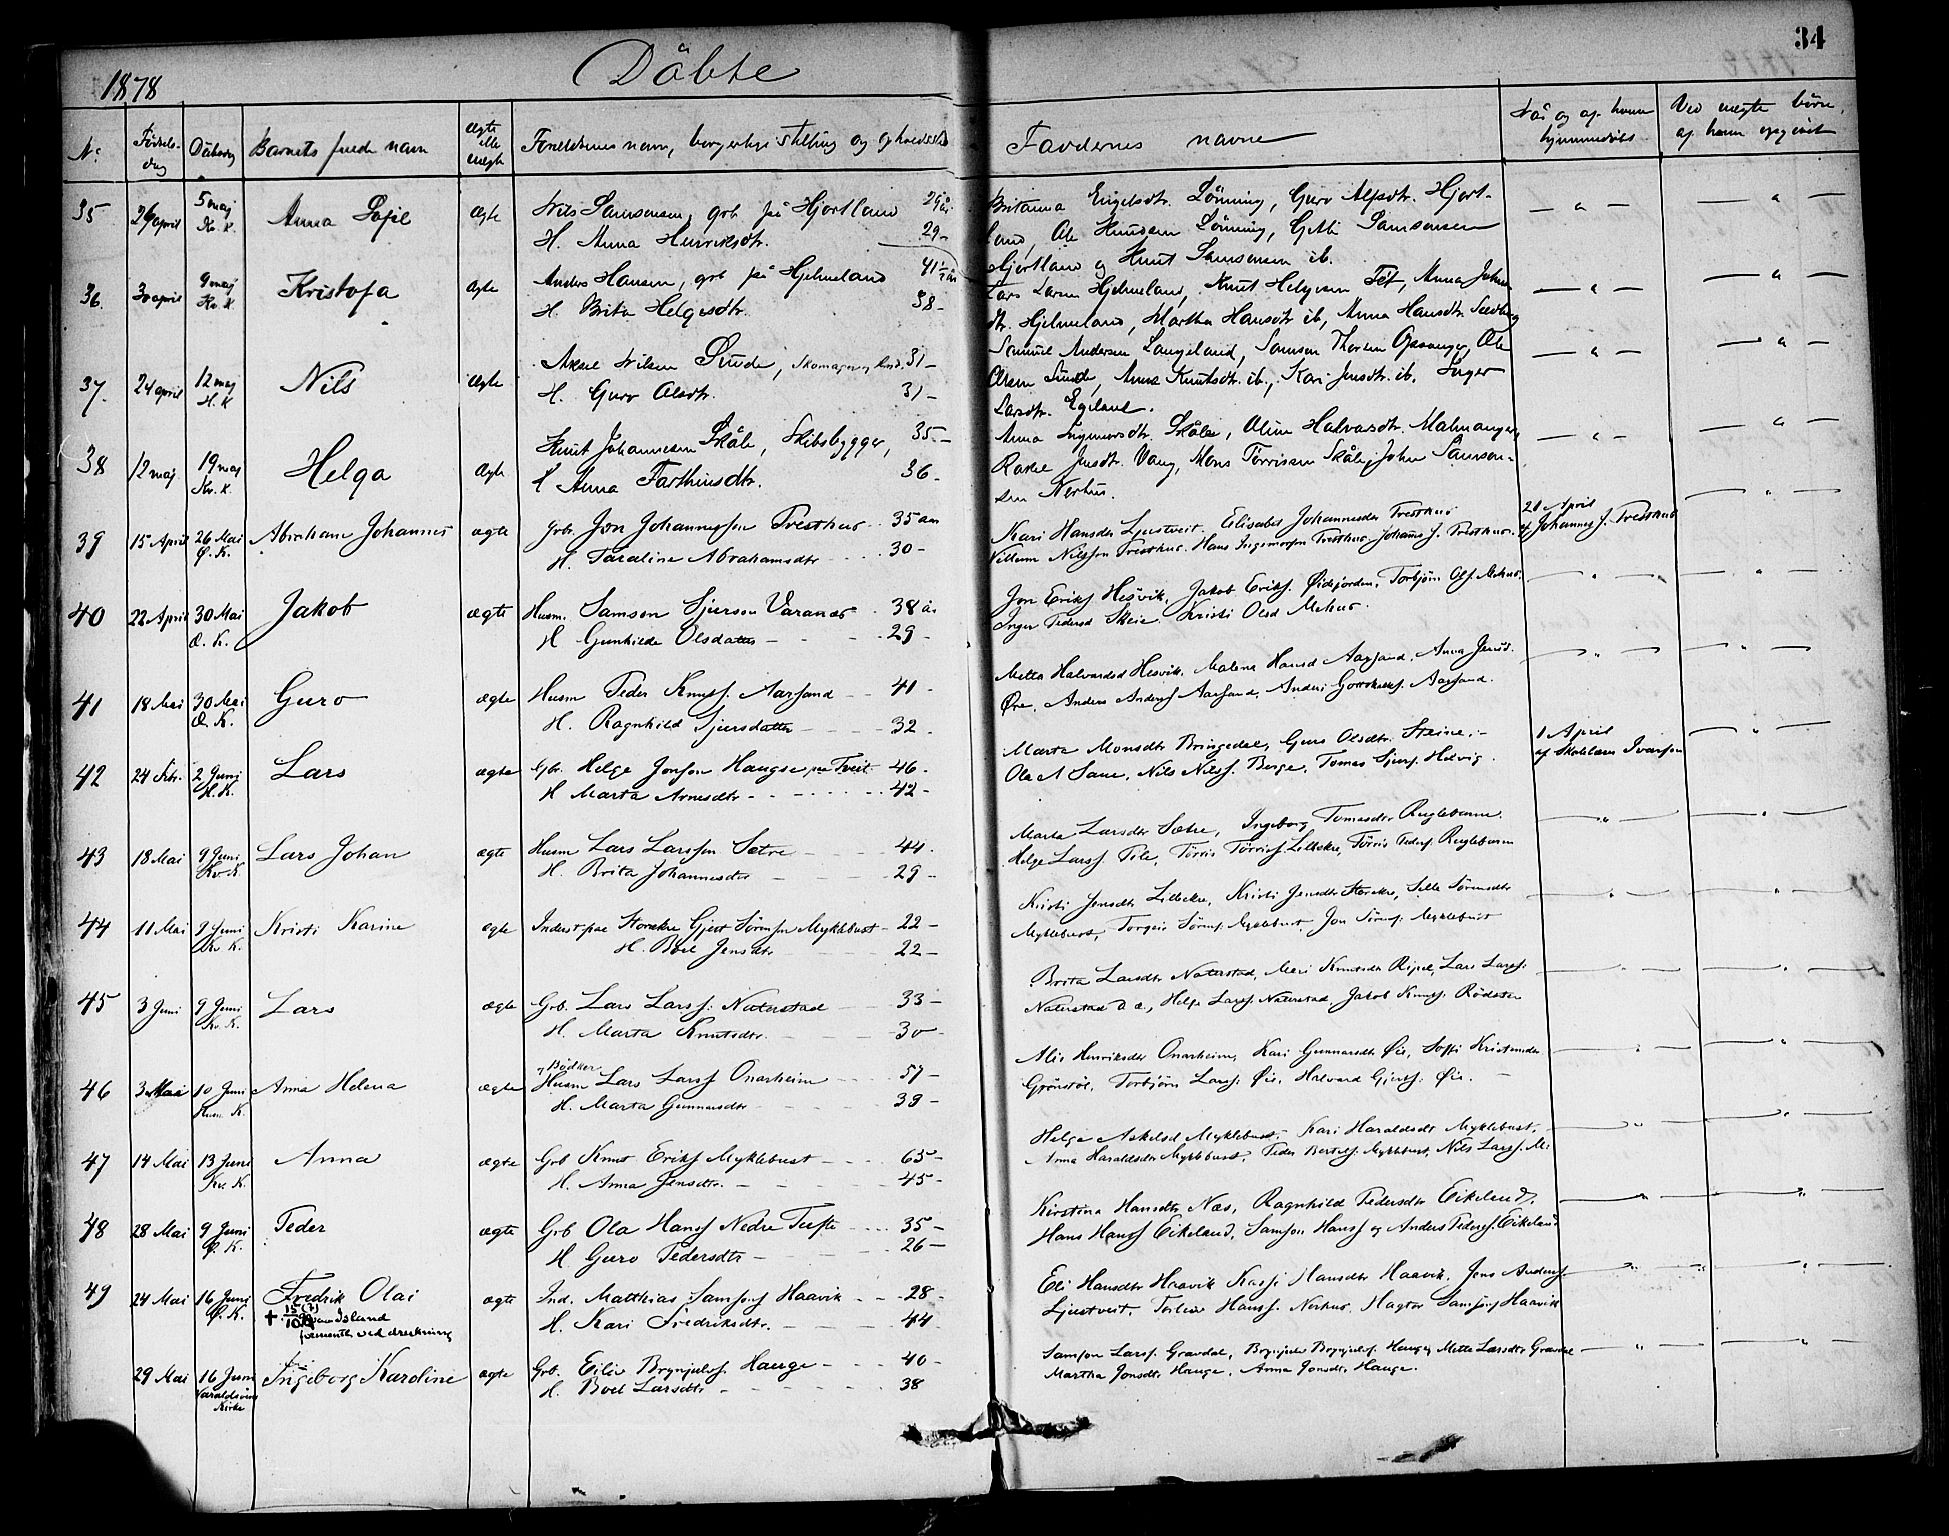 34
1878
Døbte
No
Fødsels-
dag
Dåbsdag
Barnets fulde navn
Ægte
eller
uægte
Forældrenes navn, borgerlige stilling og opholdssted
Faddernes navne
Når og af hvem
hjemmedøbt
Ved uægte børn,
af hvem opgivet
35
26 april
5 maj
Kv. K.
Anna Sofie
Ægte
Nils Samsonsen, grb. på Hjortland 29 år
H. Anna Henriksdtr. 29-
Britanna Engelsdtr. Lönning, Guro Alfsdtr. Hjort-
land, Ole Knudsen Lönning, Samsonsen
Hjortland og Knut Samsonsen ib.
36.
30 april
9 maj
Kv. K
Kristofa
Ægte
Anders Hansen, grb på Hjelmeland 41½ år
H. Brita Helgesdtr. 38-
Lars Larsen Hjelmeland, Knut Helgesen Anna Johan
dtr. Hjelmeland, Martha Hansdtr ib, Anna Hansdtr.
37.
24 april
12 maj
H. K
Nils
Ægte
Aksel Nilsen Sunde, Skomager 31-
H. Guro Olsdtr. 31-
Samuel Andersen Langeland, Samson Opsanger, Ole
Olsen Sunde, Anna Knutsdtr. ib., Kari Jensdtr. ib. Inger
Larsdtr. Egeland.
38
12 maj
19 maj
Kv. K.
Helga
Ægte
Knut Johannesen Skåle, Skibsbygger, 35.-
H Anna Farthinsdtr. 36-
Anna Ingemorsdtr. Skåle, Oline Halvorsdtr. Malmanger,
Rakel Jensdtr. Vaag, Mons Törrisen Skåle, John Samson-
sen Nerhus.
39
15 April
26 Mai
Ø. K.
Abraham Johannes
ægte
Grb. Jon Johannessen Tresthus 35 aar
H. Saraline Abrahamsdtr 30-
Kari Hansdtr Ljostveit. Elisabet Johannesdtr Tresthus
Villum Nilssen Tresthus. Hans Ingemorsen Tresthus Johannes J. Tresthus.
20 April
af Johannes J. Tresthus
40
22 April
30 Mai
Ø. K.
Jakob
ægte
Husm. Samson Sjurson Varanes 38 år
H Gunhilde Olsdatter 29-
Jon Eriks. Hesvik, Jakob Eriks. Øidefjorden, Torbjörn Ols. Mehus
Inger Pedersd Skeie. Kristi Olsd Mehus.
41
18 Mai
30 Mai
Ø. K.
Guro
ægte
Husm Peder Knuts. Aarsand 41-
H. Ragnhild Sjursdatter 32.
Metta Halvardsd Hesvik. Malena Hansd Aarsand, Anna Jensd.
Øre, Anders Anders Aarsand, Anders Aarsand.
42
24 Febr.
2 Juni
H. K.
Lars
ægte
Gbr. Helge Jonson Haugse paa Tveit 46-
H Marta Arnesdtr 42-
Marta Monsdtr Bringedal, Guro Olsdtr. Steine.
Ola A Sane, Nils Nilss. Berge, Tomas Sjurs. Helvig.
1 April
af Skolelærer Ivarson
43
18 Mai
9 Juni
Kv K.
Lars Johan
ægte
Husm Lars Larsson Sætre 44.
H. Brita Johannesdtr 29-
Marta Larsdtr Sætre, Ingeborg Tomasdtr Rugleberne
Helge Larss. Pile, Törris Törris. Lillekre, Törris Peders. Rugleberne
44
11 Mai
9 Juni
Kv K.
Kristi Karine
ægte
Inderst paa Storekre Gjert Sörensen Myklebust 22-
H. Boel Jensdtr 22-
Kristi Jensdtr Lillekre, Kristi Jensdtr Storekre, Sille Sörensdtr
Myklebust, Torgeir Sörens. Myklebust, Jon Sörens. Myklebust
45
3 Juni
9 Juni
Kv. K.
Lars
ægte
Grb. Lars Larss. Naterstad 33-
H. Marta Knutsdtr. 30-
Brita Larsdtr Naterstad, Mari Knutsdtr Ripel, Lars Larss.
Naterstad d. æ., Helge Larss Naterstad. Jakob Knuts. Rödseter
46
3 Mai
10 Juni
K.
Anna Helena
ægte
Bödker
Husm Lars Larss Onarheim 57-
H. Marta Gunnarsdtr 39-
Alis Henriksdtr Onarheim, Kari Gunnarsdtr Øie, Kristensdtr
Grönstöl, Torbjörn Larss. Øie, Halvard Gjerts. Øie.
47
14 Mai
13 Juni
Kv. K.
Anna
ægte
Grb Knut Eriks Myklebust 65-
H. Anna Jensdtr. 45-
Helga Askelsd Myklebust, Kari Haraldsdtr Myklebust,
Anna Haraldsdtr Myklebust, Peder Bertels. Myklebust, Nils Larss. M.
48
28 Mai
9 Juni
Ø. K.
Peder
ægte
Grb Ola Hanss Nedre Tufte 35-
H Guro Pedersdtr 26-
Kirstina Hansdtr Næs, Ragnhild Pedersdtr Eikeland,
Hans Hanss Eikeland, Samson Hanss og Anders Peders. Eikeland
49
24 Mai
16 Juni
Ø. K.
Fredrik Olai
† 15 (?)
Island
ved drukning
ægte
Ind. Matthias Samsons Haavik 28-
H. Kari Fredriksdtr. 44-
Eli Hansdtr Haavik Hansdtr Haavik. Jens Anders.
Ljostveit, Torleiv Hanss. Nerhus, Samsons Haavik
29 Mai
16 Juni
Varaldsöens
Kirke
Ingeborg Karoline
ægte
Grb. Eiliv Brynjulvs. Hauge 40-
H. Boel Larsdtr 38
Samson Larss. Gravdal, Brynjulv Brynjulvs. Hauge Mette Larsdtr Gravdal
Martha Jonsdtr Hauge, Anna Jonsdtr. Hauge.